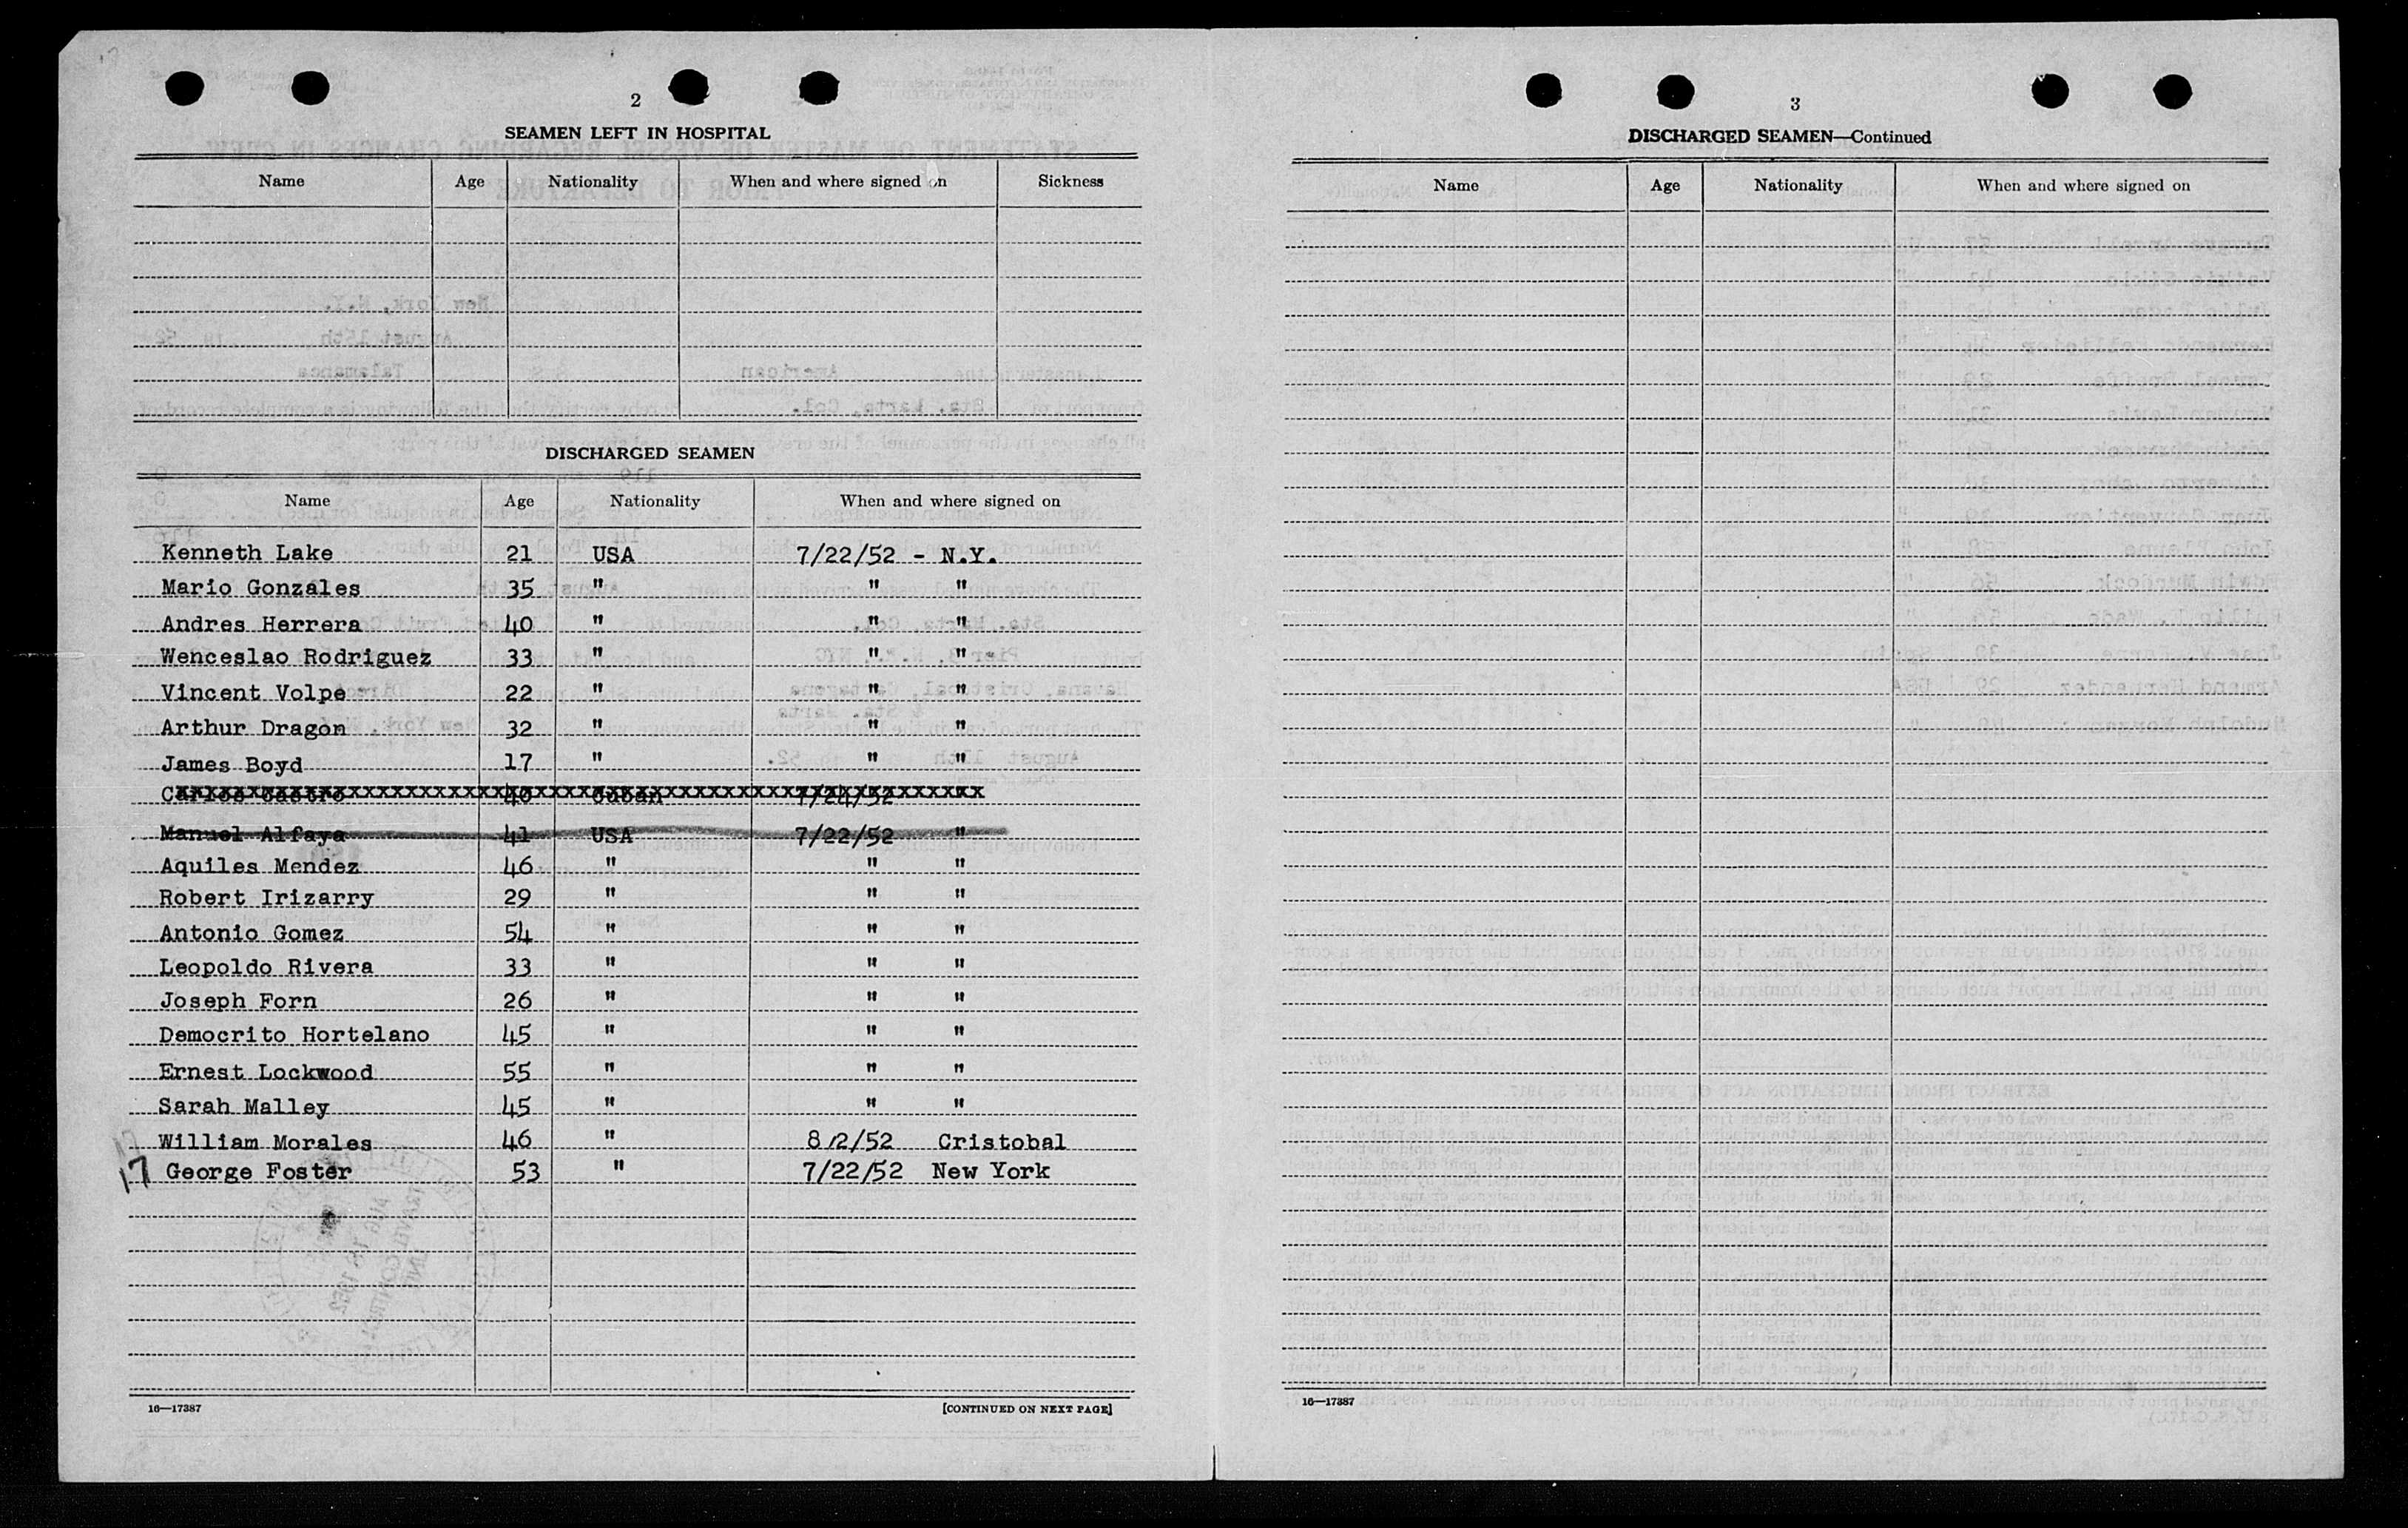 2
SEAMEN LEFT IN HOSPITAL
Name Age Nationality When and where signed on Sickness
DISCHARGED SEAMEN
Name Age Nationality When and where signed on
Kenneth Lake 21 USA 7/22/52 - N.Y.
Mario Gonzales 35 " " "
Andres Herrera 40 " " "
Wenceslao Rodriguez 33 " " "
Vincent Volpe 22 " " "
Arthur Dragon 32 " " "
James Boyd 17 " " "
Carlos Castro 40 Cuban 7/24/52 "
Manuel Alfaya 41 USA 7/22/52 "
Aquiles Mendez 46 " " "
Robert Irizarry 29 " " "
Antonio Gomez 54 " " "
Leopoldo Rivera 33 " " "
Joseph Forn 26 " " "
Democrito Hortelano 45 " " "
Ernest Lockwood 55 " " "
Sarah Malley 45 " " "
William Morales 46 " 8/2/52 Cristobal
17 George Foster 53 " 7/22/52 New York
16—17387 [CONTINUED ON NEXT PAGE]
3
DISCHARGED SEAMEN—Continued
Name Age Nationality When and where signed on
16—17387